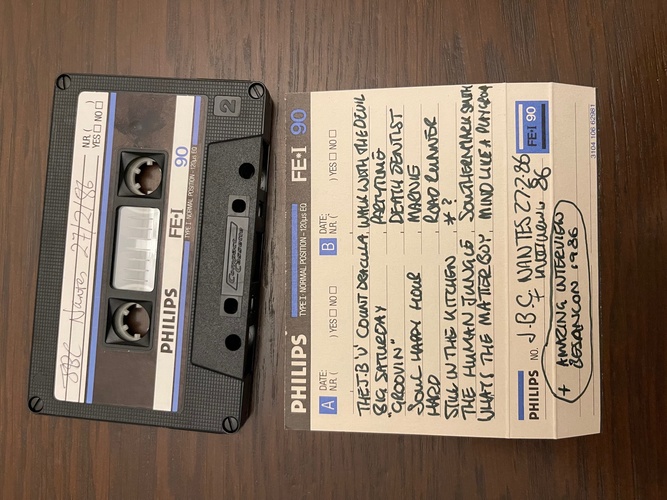 JBC Nantes 27/2/86
N.R. (
YES □ NO □
PHILIPS
FE·I 90
TYPE I · NORMAL POSITION · 120µs EQ
2
Compact Cassette
PHILIPS
TYPE I · NORMAL POSITION · 120µs EQ
FE·I 90
A DATE:
N.R. ( ) YES □ NO □
B DATE:
N.R. ( ) YES □ NO □
THE J.B 'U' COUNT DRACULA
BIG SATURDAY
"GROOVIN"
SOUL HAPPY HOUR
HARD
STILL IN THE KITCHEN
THE HUMAN JUNGLE
WHAT'S THE MATTER BOY
WALK WITH THE DEVIL
PARTYTIME
DEATH DENTIST
MARNIE
ROAD RUNNER
* ?
SOUTHERN MARK SMITH
MIND LIKE A PLAYGROUP
PHILIPS NO. J.B.C. NANTES 27.2.86
+ INTERVIEW 86
FE·I 90
+ AMAZING INTERVIEW
BESANCON 1986
3104 106 62981